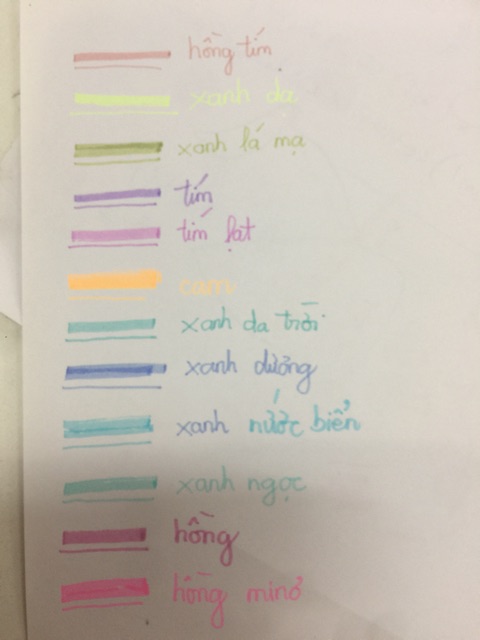 hồng tím
xanh dạ
xanh lá mạ
tím
tím lạt
cam
xanh da trời
xanh dương
xanh nước biển
xanh ngọc
hồng
hồng minơ